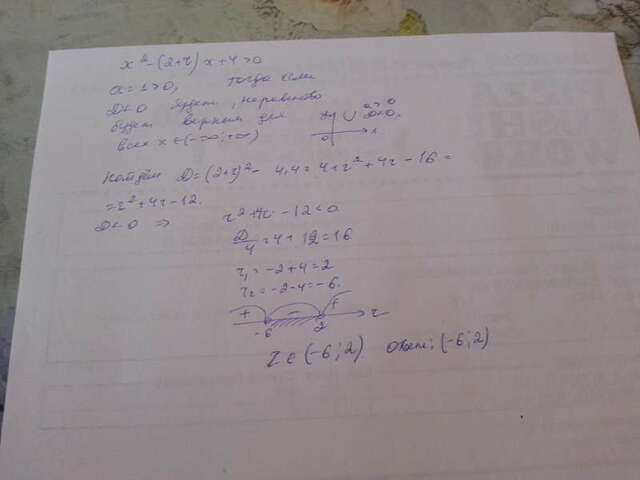 x²-(2+r)x+4>0
a=1>0, тогда если
D<0 будет, неравенство
будет верным для
всех x∈(-∞;+∞)
a>0
D<0
0 x
Найдём D=(2+r)²-4·4=4+r²+4r-16=
=r²+4r-12.
D<0 => r²+4r-12<0
D/4=4+12=16
r₁=-2+4=2
r₂=-2-4=-6.
+ - + r
-6 2
r∈(-6;2) Ответ: (-6;2)